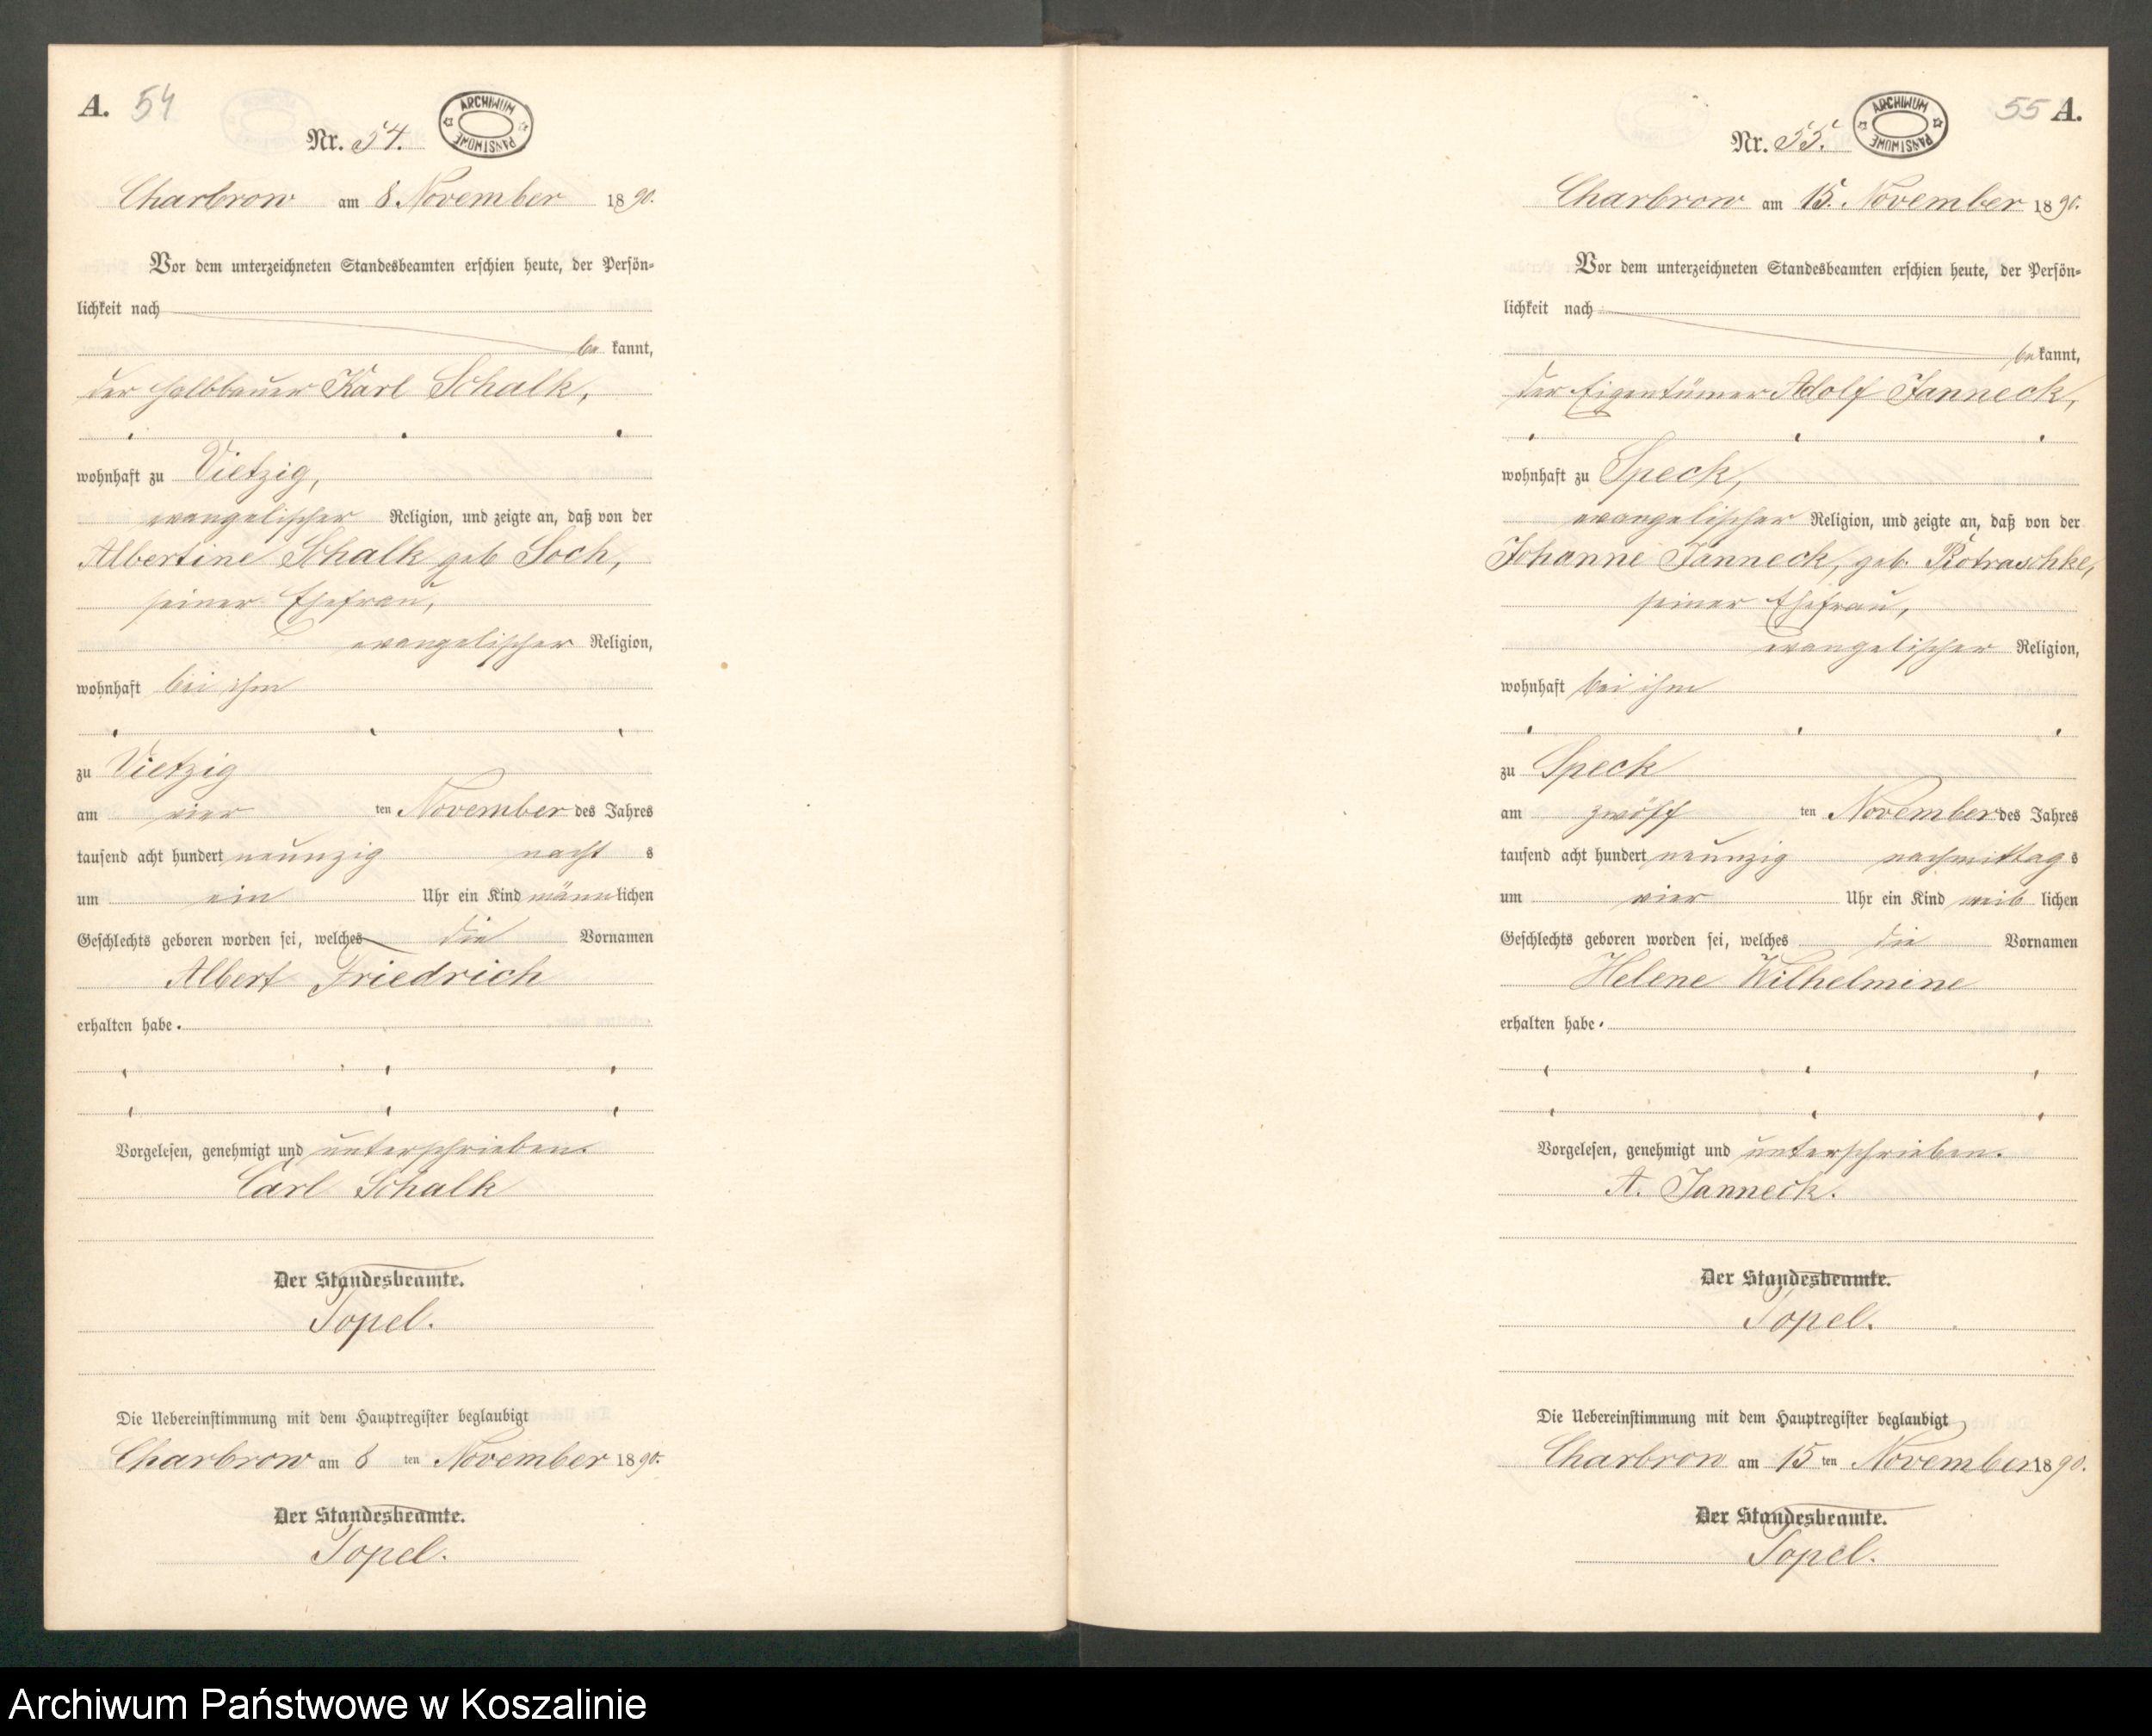 A. 54
Nr. 54.
ARCHIWUM PAŃSTWOWE
Charbrow am 8. November 1890.
Vor dem unterzeichneten Standesbeamten erschien heute, der Persön-
lichkeit nach
be kannt,
der Halbbauer Karl Schalk,
wohnhaft zu Vietzig,
evangelischer Religion, und zeigte an, daß von der
Albertine Schalk geb Soch,
seiner Ehefrau,
evangelischer Religion,
wohnhaft bei ihm
zu Vietzig
am vier ten November des Jahres
tausend acht hundert neunzig nacht s
um ein Uhr ein Kind männlichen
Geschlechts geboren worden sei, welches die Vornamen
Albert Friedrich
erhalten habe.
Vorgelesen, genehmigt und unterschrieben.
Carl Schalk
Der Standesbeamte.
Topel.
Die Uebereinstimmung mit dem Hauptregister beglaubigt
Charbrow am 8 ten November 1890.
Der Standesbeamte.
Topel.
55 A.
Nr. 55.
ARCHIWUM PAŃSTWOWE
Charbrow am 15. November 1890.
Vor dem unterzeichneten Standesbeamten erschien heute, der Persön-
lichkeit nach
be kannt,
der Eigentümer Adolf Janneck,
wohnhaft zu Speck,
evangelischer Religion, und zeigte an, daß von der
Johanne Janneck, geb. Kotraschke,
seiner Ehefrau,
evangelischer Religion,
wohnhaft bei ihm
zu Speck
am zwölf ten November des Jahres
tausend acht hundert neunzig nachmittag s
um vier Uhr ein Kind weib lichen
Geschlechts geboren worden sei, welches die Vornamen
Helene Wilhelmine
erhalten habe.
Vorgelesen, genehmigt und unterschrieben.
A. Janneck.
Der Standesbeamte.
Topel.
Die Uebereinstimmung mit dem Hauptregister beglaubigt
Charbrow am 15 ten November 1890.
Der Standesbeamte.
Topel.
Archiwum Państwowe w Koszalinie